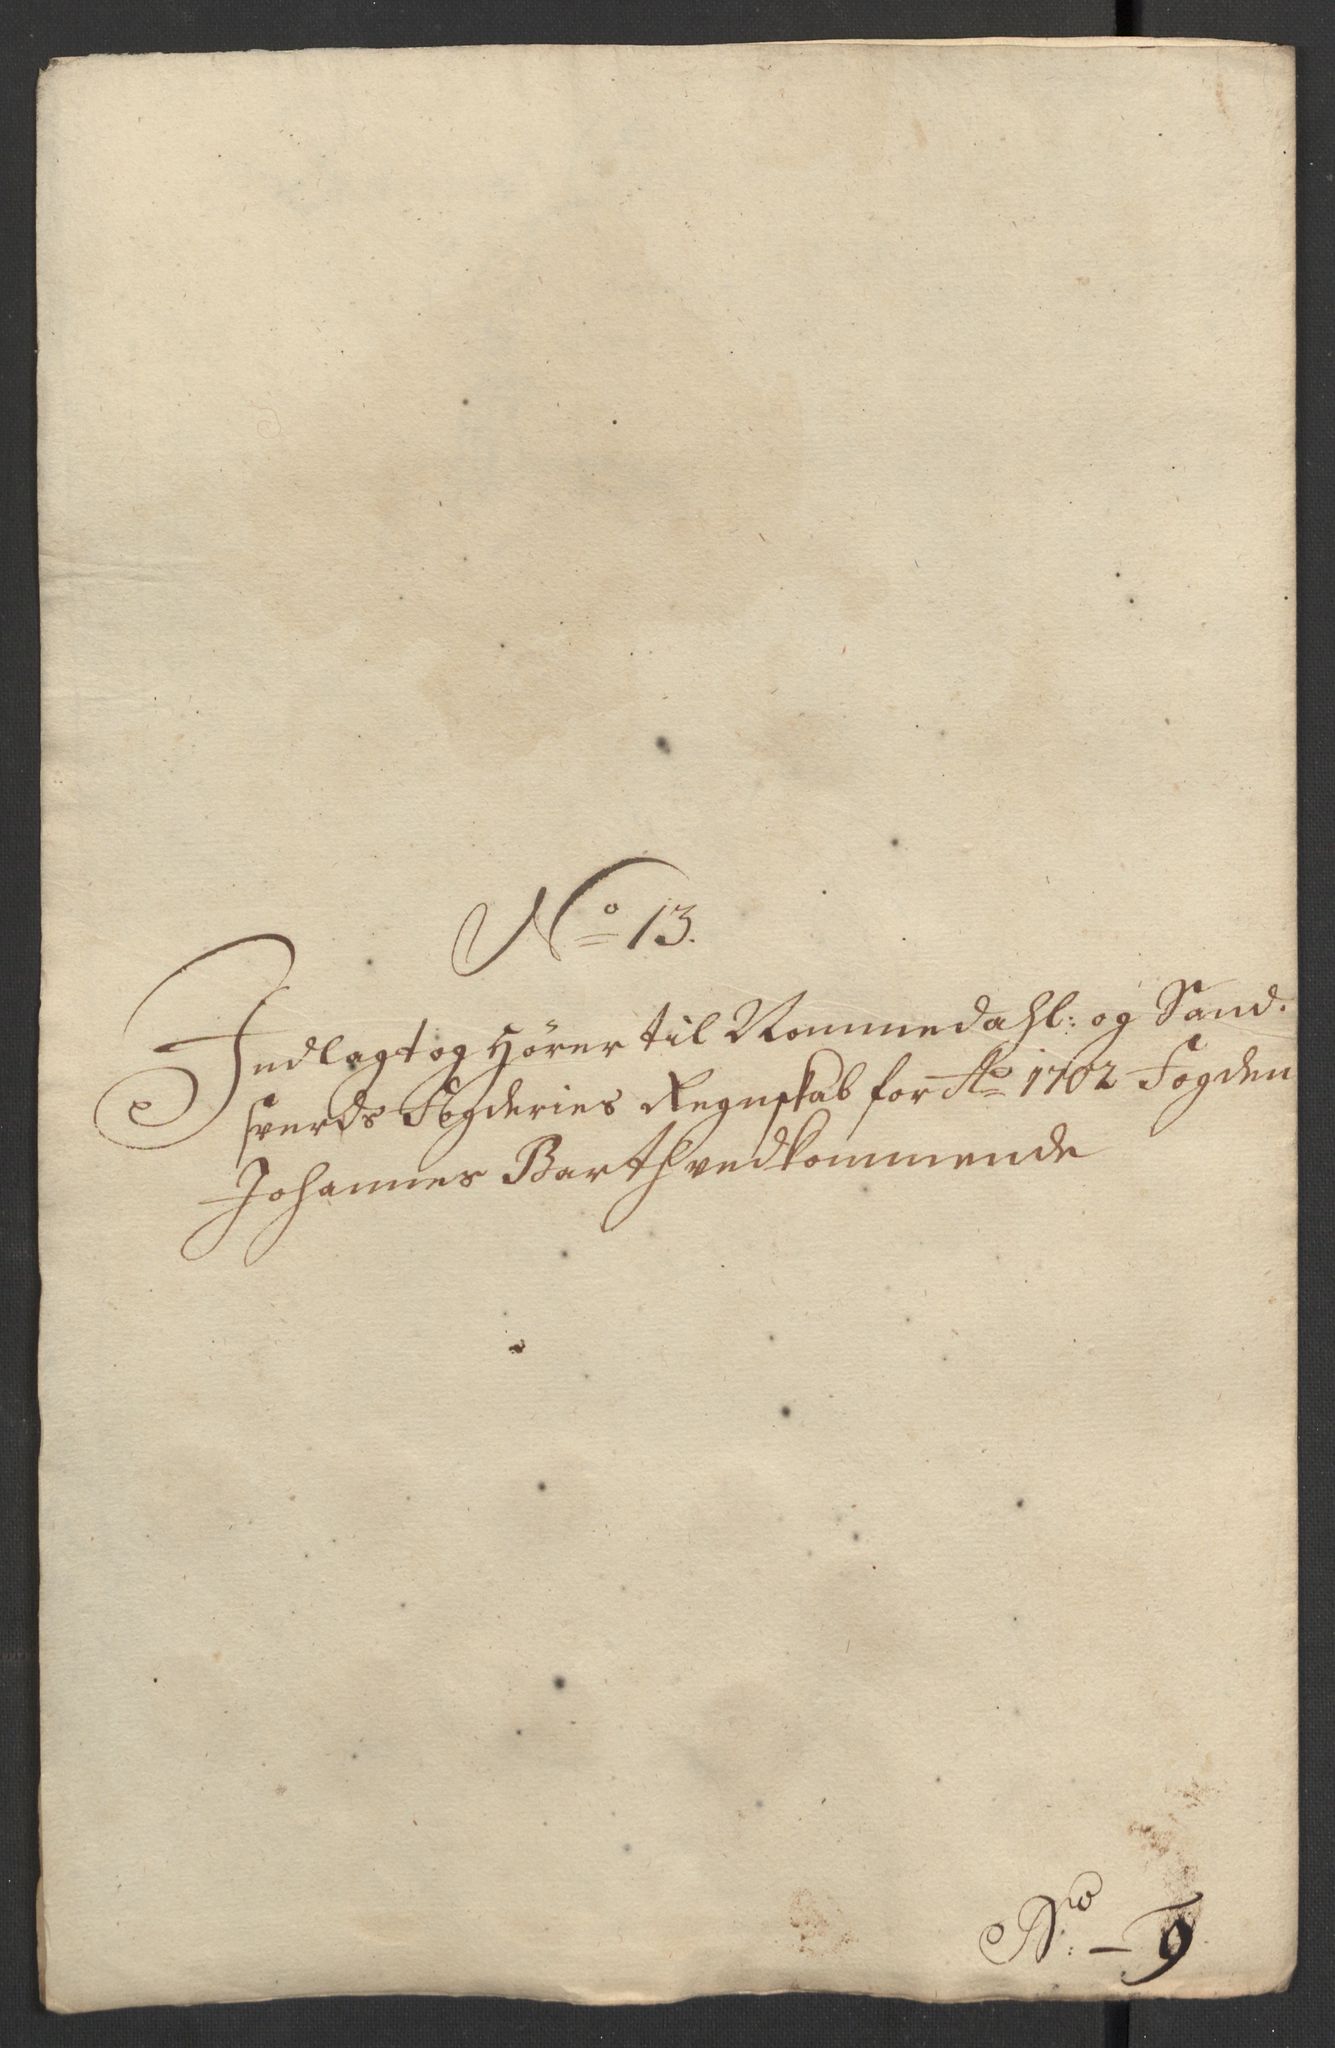 No 13.
Indlagt og Hörer til Nommedahl: og Sand.
sverds Fogderies Regnskab for Ao 1702 Fogden
Johannes Barth vedkommende
Nro: – 9